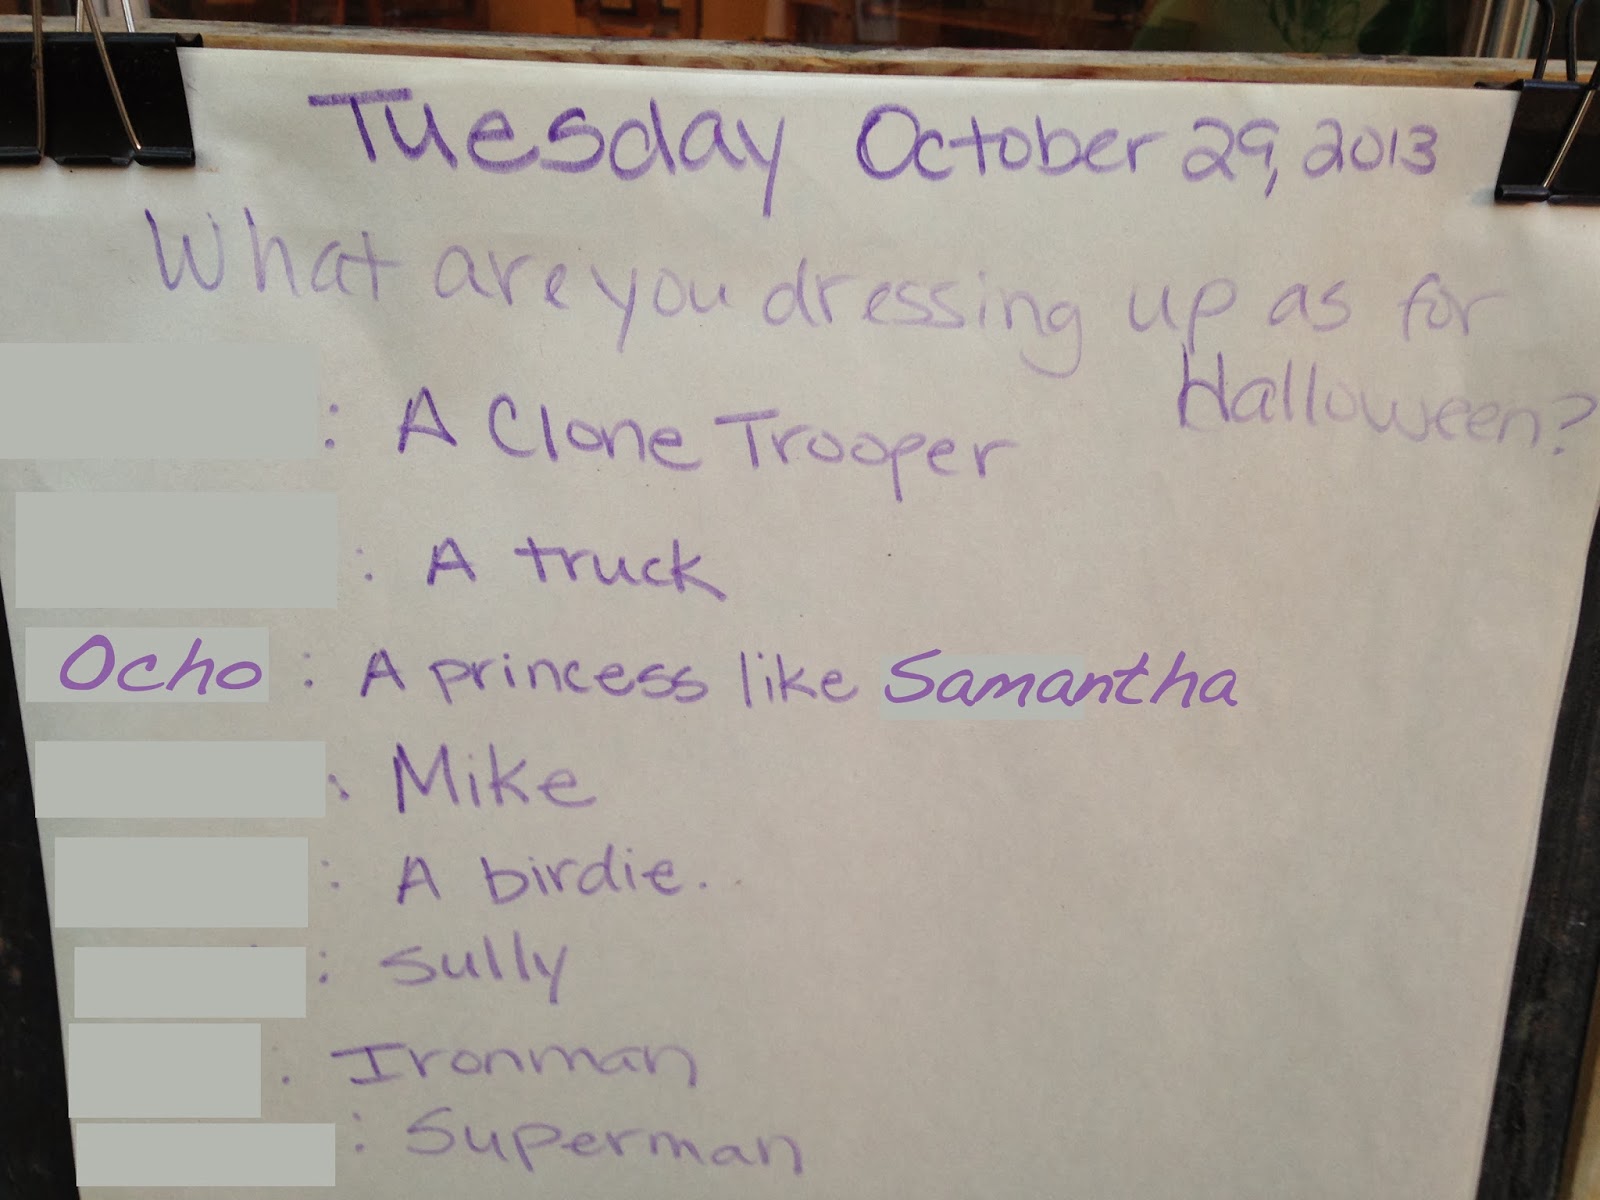 Tuesday October 29, 2013
What are you dressing up as for
Halloween?
: A Clone Trooper
: A truck
Ocho : A princess like Samantha
: Mike
: A birdie.
: Sully
. Ironman
: Superman